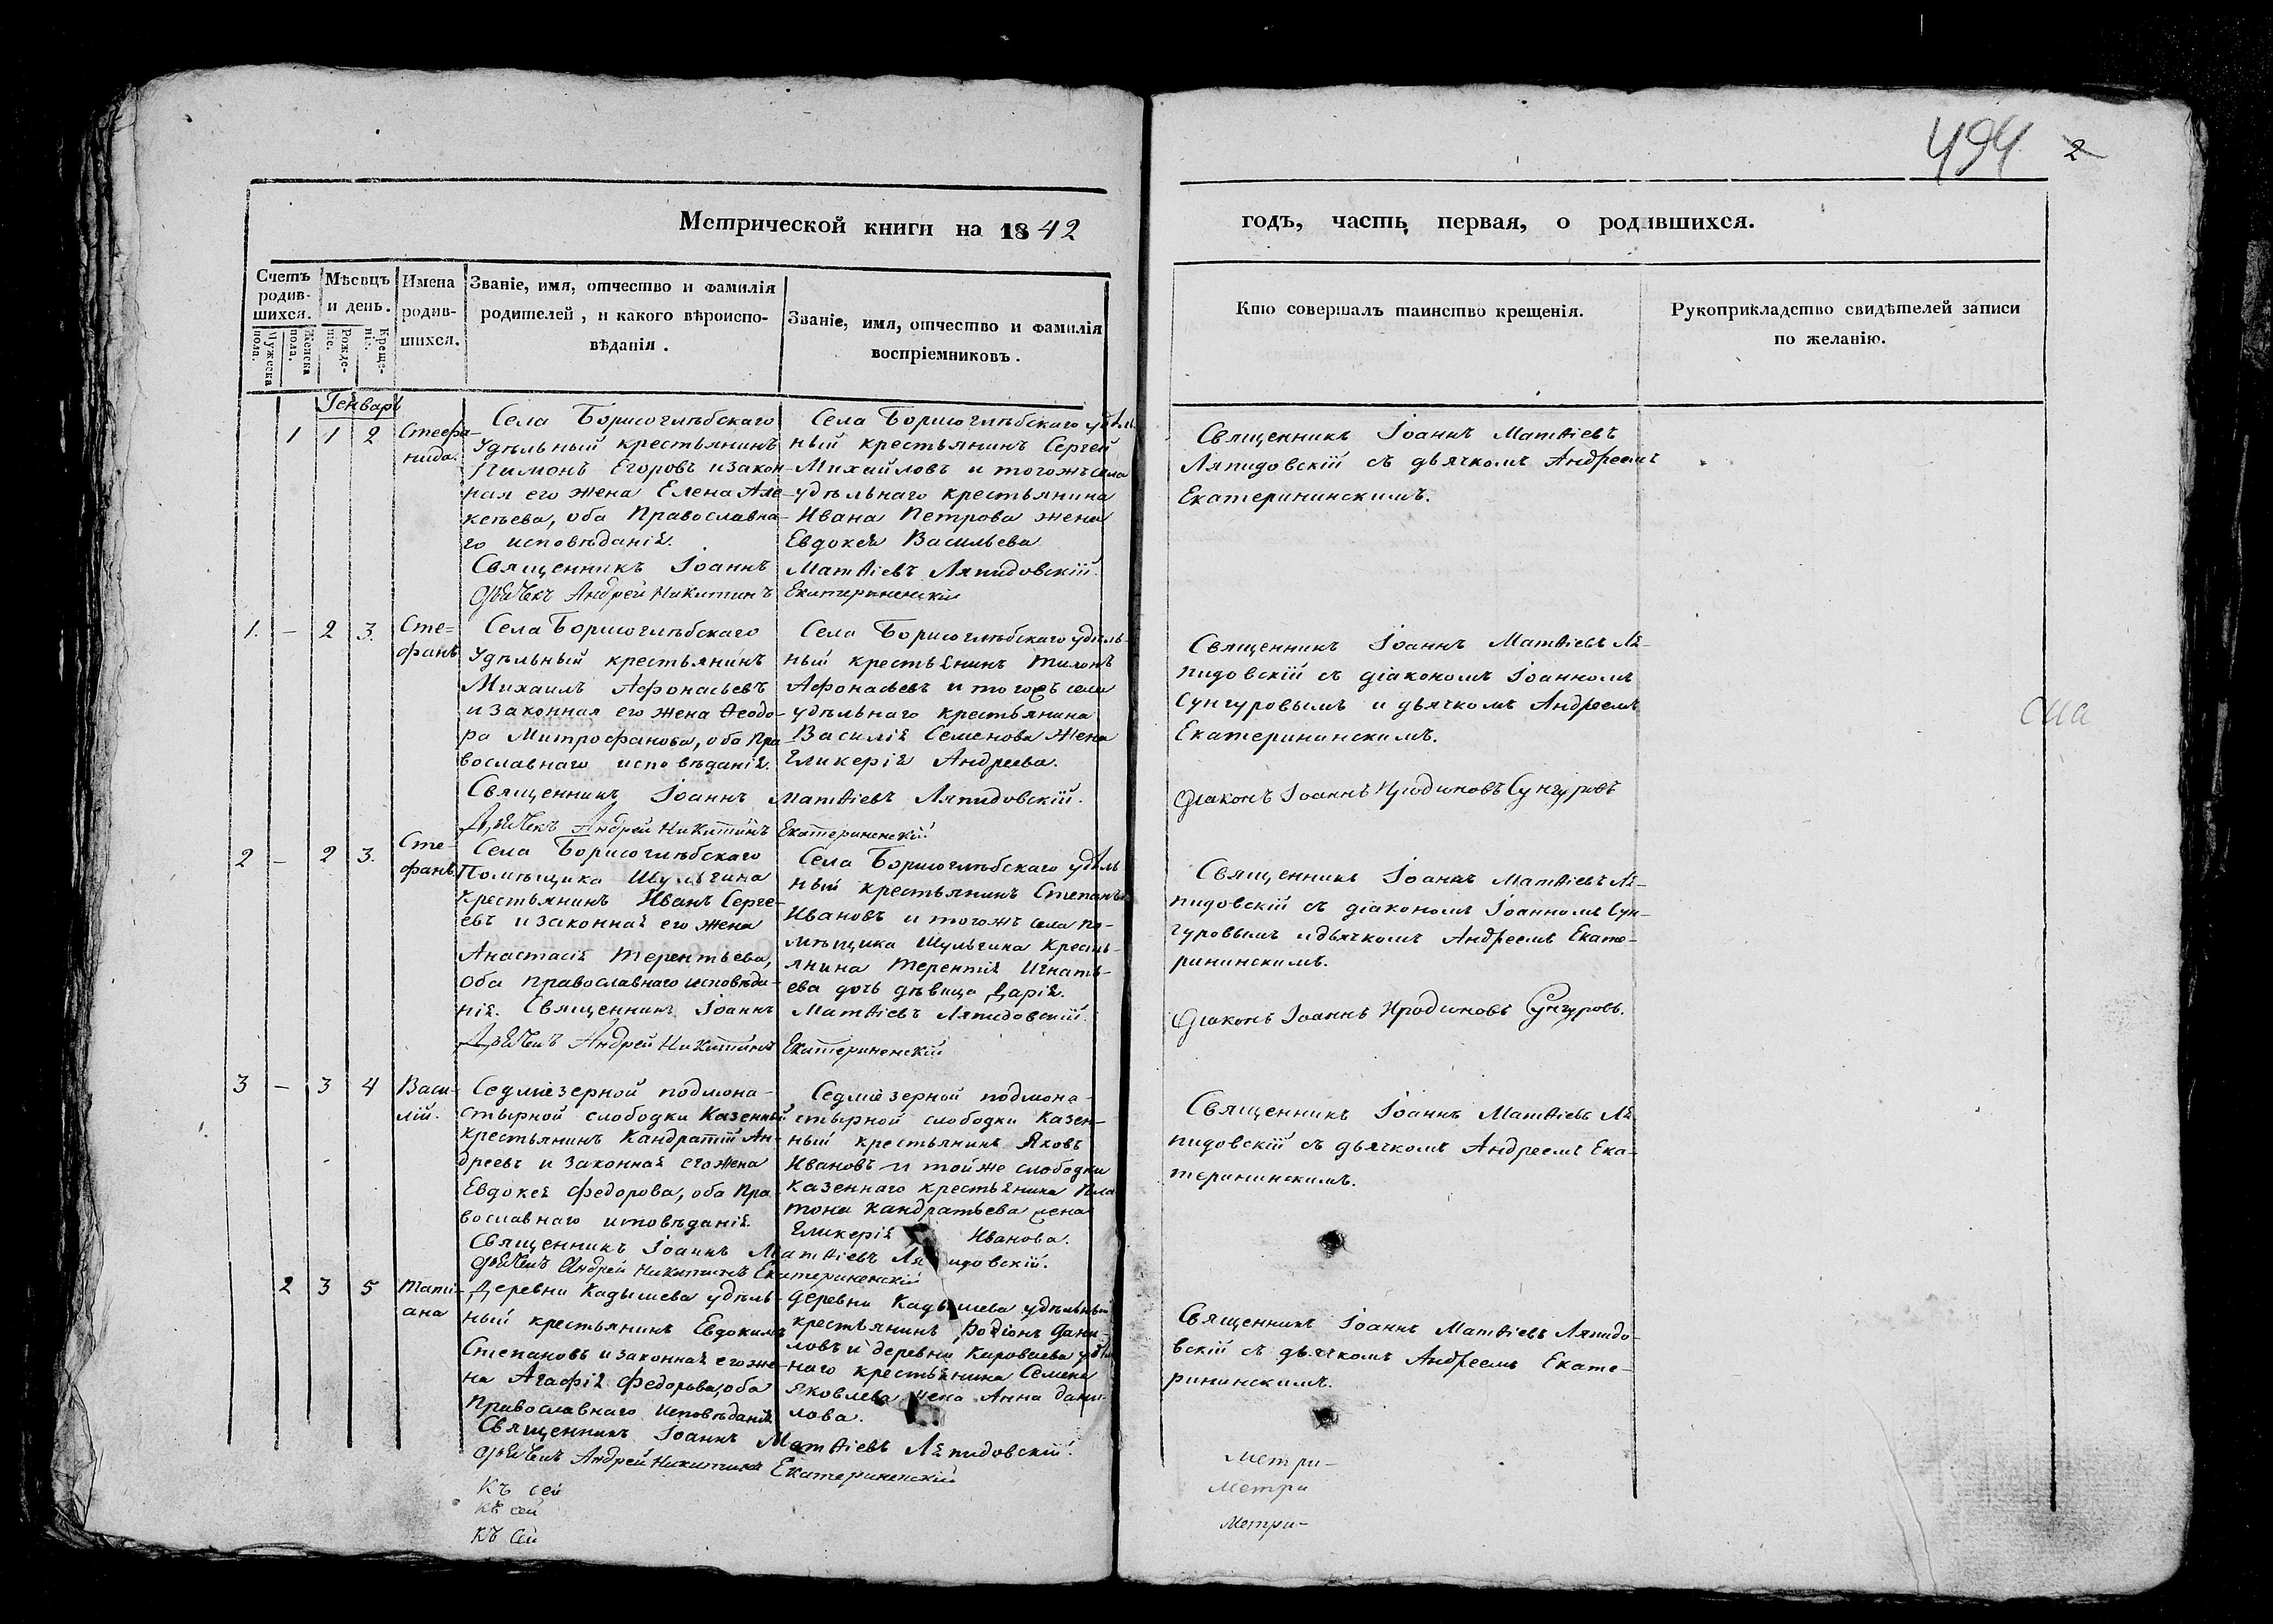 494 2
Метрической книги на 1842
годъ, часть первая, о родившихся.
Счетъ родив-шихся.
Мужеска пола.
Женска пола.
Мѣсяцъ и день.
Рожде-ніе.
Креще-ніе.
Имена родив-шихся.
Званіе, имя, отчество и фамилія
родителей, и какого вѣроиспо-
вѣданія.
Званіе, имя, отчество и фамилія
воспріемниковъ.
Кто совершалъ таинство крещенія.
Рукоприкладство свидѣтелей записи
по желанію.
Генварь
1 1 2
Стефа-
нида.
Села Борисоглѣбскаго
Удѣльный крестьянинъ
Пимонъ Егоровъ и закон-
ная его жена Елена Але-
ксѣева, оба Православна-
го исповѣданія.
Священникъ Іоаннъ Матвіевъ Ляпидовскій.
Дьячекъ Андрей Никитинъ Екатериненскій
Села Борисоглѣбскаго удѣль-
ный крестьянинъ Сергей
Михайловъ и тогожъ села
удѣльнаго крестьянина
Ивана Петрова жена
Евдокея Васильева
Священникъ Іоаннъ Матвіевъ
Ляпидовскій съ дьячкомъ Андреемъ
Екатерининскимъ.
1. – 2 3.
Сте=
фанъ
Села Борисоглѣбскаго
Удѣльный крестьянинъ
Михаилъ Афонасьевъ
и законная его жена Ѳеодо-
ра Митрофанова, оба Пра-
вославнаго исповѣданія.
Священникъ Іоаннъ Матвіевъ Ляпидовскій.
Дьячекъ Андрей Никитинъ Екатериненскій
Села Борисоглѣбскаго удѣль-
ный крестьянинъ
Афонасьевъ и тогожъ села
удѣльнаго крестьянина
Василія Семенова жена
Гликерія Андреева.
Священникъ Іоаннъ Матвіевъ Ля-
пидовскій съ діакономъ Іоанномъ
Сунгуровымъ и дьячкомъ Андреемъ
Екатерининскимъ.
Діаконъ Іоаннъ Иродионовъ Сунгуровъ
сна
2 – 2 3.
Сте-
фанъ
Села Борисоглѣбскаго
Помѣщика Шульгина
Крестьянинъ Иванъ Серге-
евъ и законная его жена
Анастасія Терентьева,
оба православнаго исповѣда-
нія. Священникъ Іоаннъ Матвіевъ Ляпидовскій.
Дьячекъ Андрей Никитинъ Екатериненскій
Села Борисоглѣбскаго удѣль
ный крестьянинъ Степанъ
Ивановъ и тогожъ села по-
мѣщика Шульгина Кресть-
янина Терентія Игнать-
ева дочь дѣвица Дарія.
Священникъ Іоаннъ Матвіевъ Ля-
пидовскій съ діакономъ Іоанномъ Сун-
гуровымъ и дьячкомъ Андреемъ Екате-
рининскимъ.
Діаконъ Іоаннъ Иродионовъ Сунгуровъ.
3 – 3 4
Васи-
лій.
Седміезерной подмона-
стырной слободки Казенный
крестьянинъ Кандратій Ан-
дреевъ и законная его жена
Евдокея Федорова, оба Пра-
вославнаго исповѣданія.
Священникъ Іоаннъ Матвіевъ Ляпидовскій.
Дьячекъ Андрей Никитинъ Екатериненскій
Седміезерной подмона-
стырной слободки Казен-
ный крестьянинъ Яковъ
Ивановъ и тойже слободки
казеннаго крестьянина Пла
тона Кандратьева жена
Гликерія Иванова.
Священникъ Іоаннъ Матвіевъ Ля
пидовскій съ дьячкомъ Андреемъ Ека-
терининскимъ.
2 3 5
Тати-
ана
Деревни Кадышева удѣль-
ный крестьянинъ Евдокимъ
Степановъ и законная его же-
на Агафія Федорова, оба
Православнаго Исповѣданія
Священникъ Іоаннъ Матвіевъ Ляпидовскій.
Дьячекъ Андрей Никитинъ Екатериненскій
деревни Кадышева удѣльный
крестьянинъ Родіонъ Дани-
ловъ и деревни удѣль
наго крестьянина Семена
Яковлева жена Анна Дани-
лова.
Священникъ Іоаннъ Матвіевъ Ляпидо-
вскій съ дьячкомъ Андреемъ Екате-
рининскимъ.
Къ сей
Къ сей
Къ сей
Метри-
Метри
Метри-